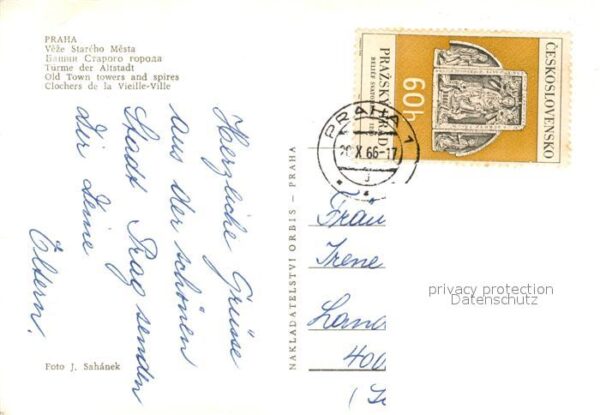 PRAHA
Věže Starého Města
Башни Старого города
Türme der Altstadt
Old Town towers and spires
Clochers de la Vieille-Ville
Herzliche Grüsse
aus der schönen
Stadt Prag senden
dir deine
Eltern.
Foto J. Sahánek
NAKLADATELSTVÍ ORBIS – PRAHA
ČESKOSLOVENSKO
60h
PRAŽSKÝ HRAD
RELIÉF
PRAHA 1
X 66-17
Fräu
Irene
Land
400
privacy protection
Datenschutz